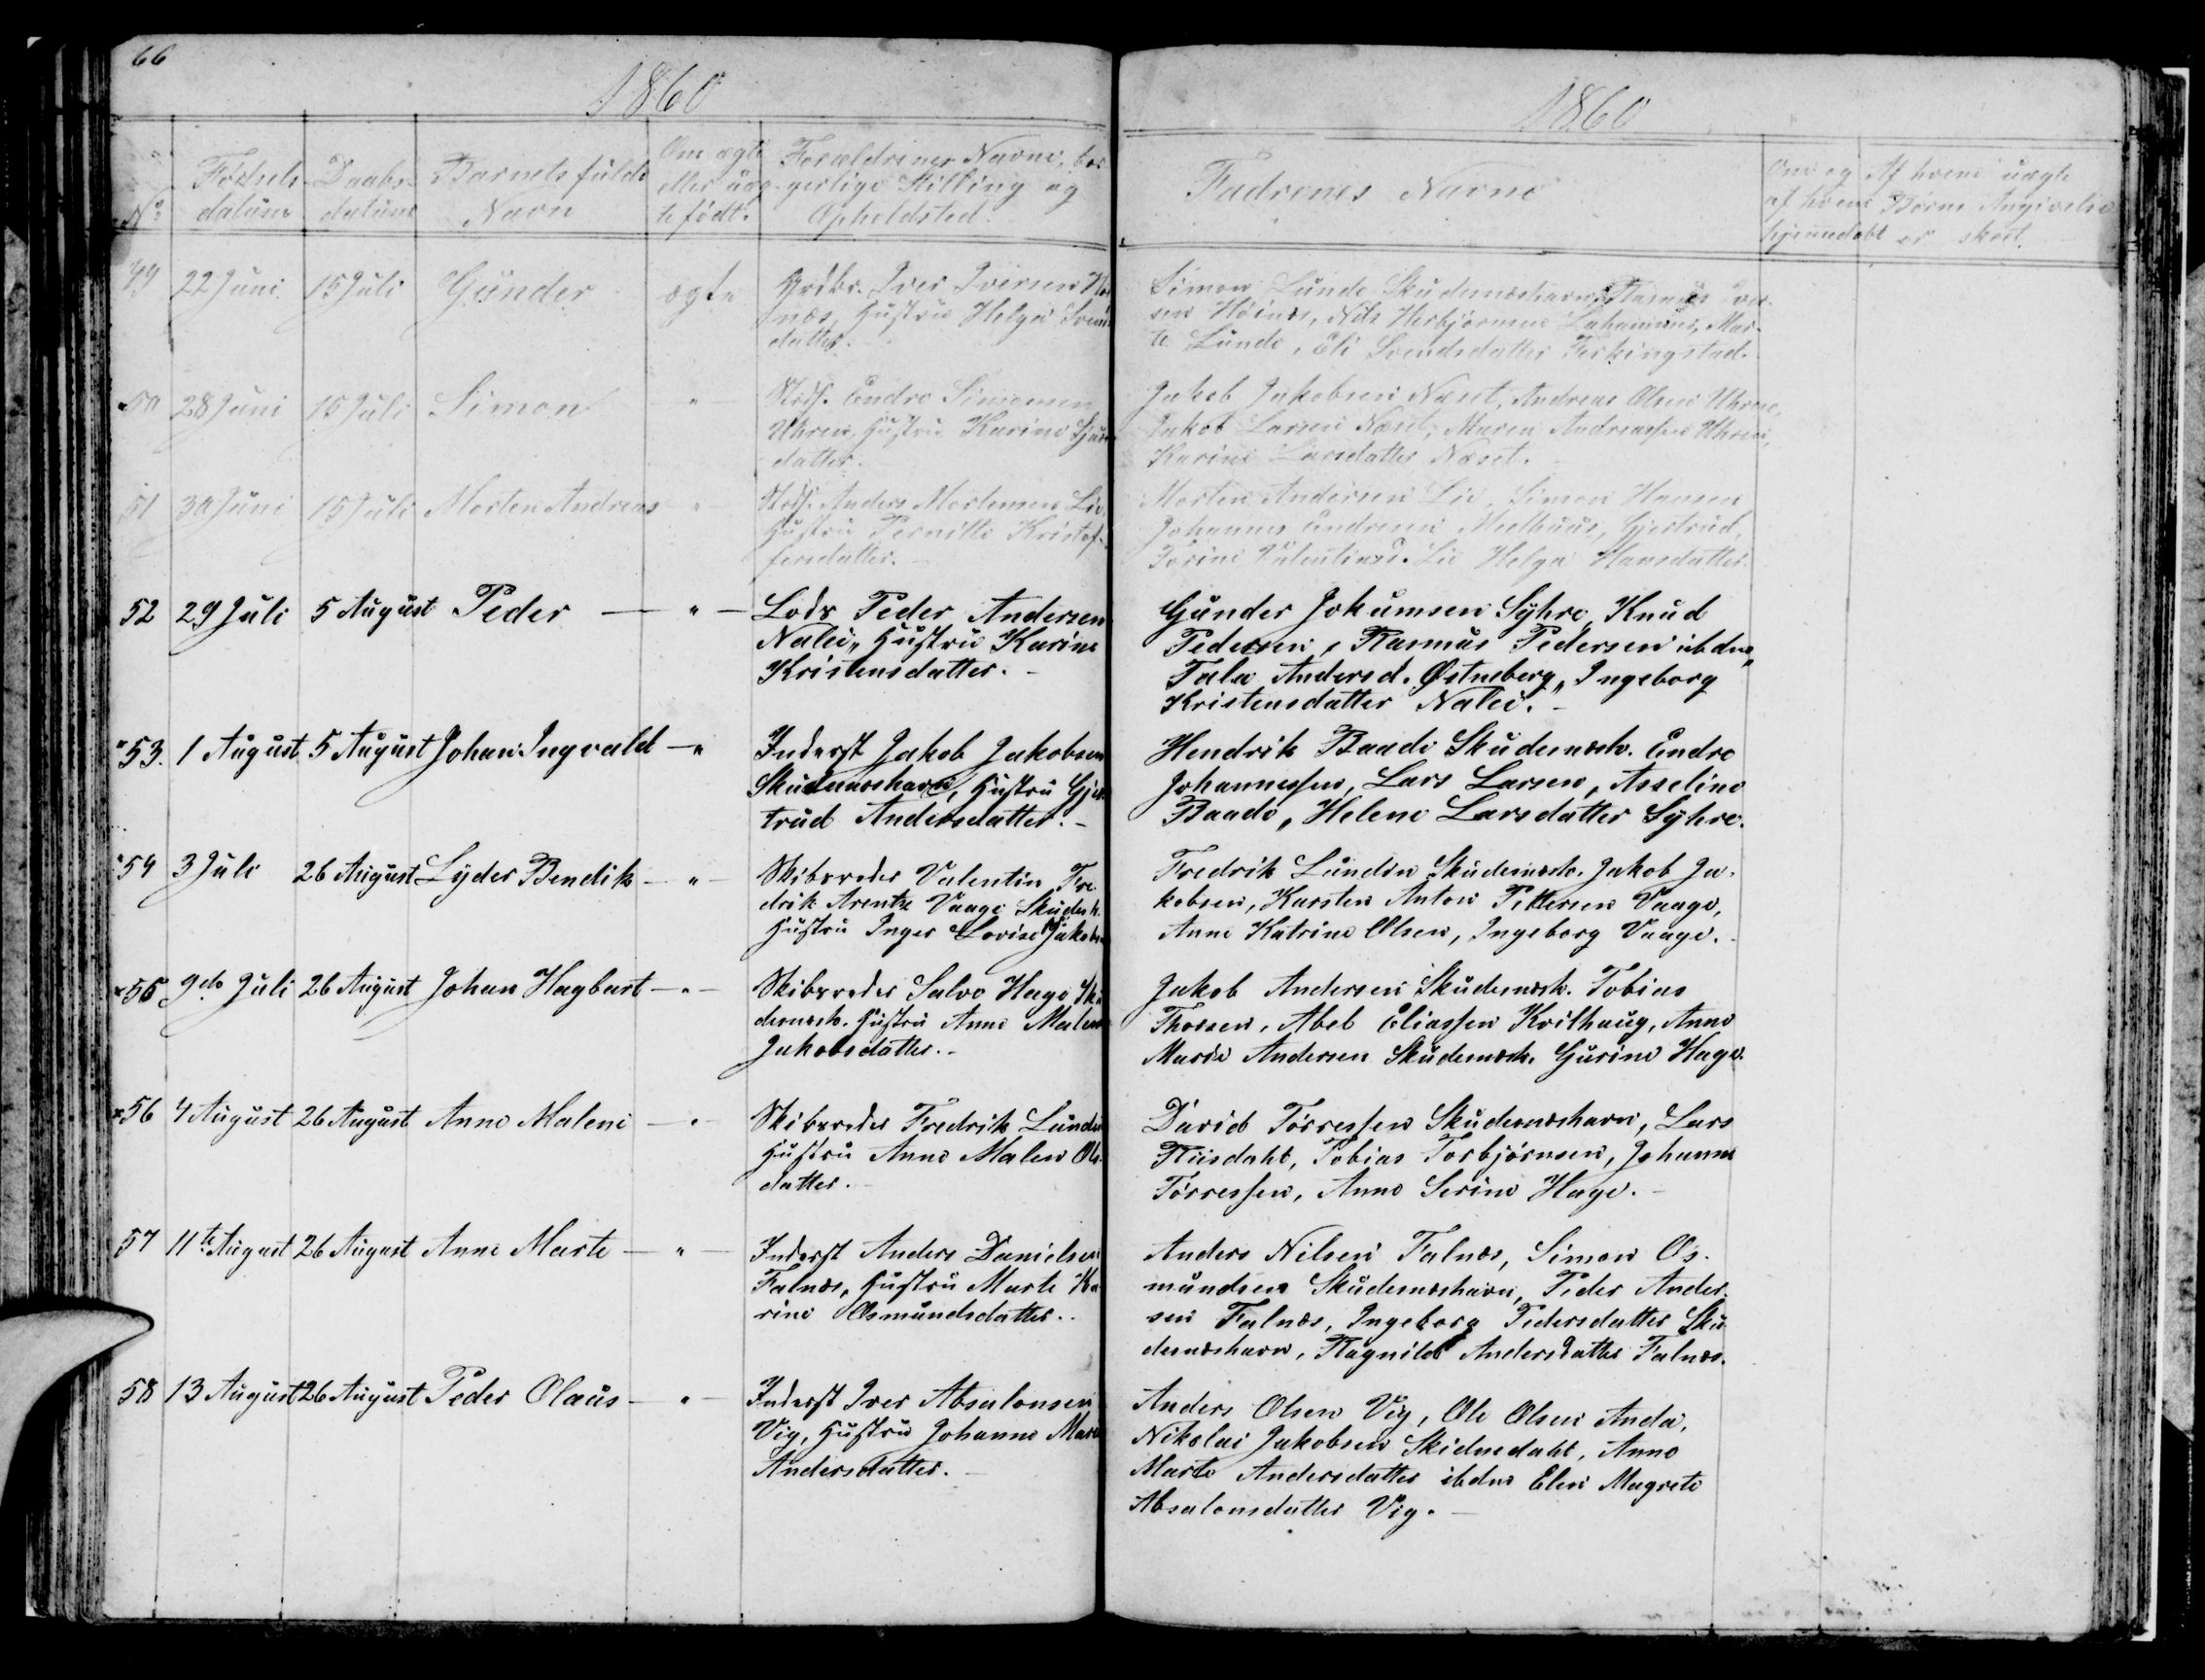 66
1860
1860
No
Fødsels-
datum
Daabs-
datum
Barnets fulde
Navn
Om ægte
eller uæg-
te født.
Forældrenes Navne, bor-
gerlige Stilling og
Opholdsted.
Fadrenes Navne
Om og
af hvem
hjemmedøbt
Af hvem uægte
Børns Angivelse
er skeet.
49 22 Juni 15 Juli Gunder ægte
Grdbr. Iver Iversen
næs, Hustru Helga
datter.
Simon Lunde Skudesnæshavn, Rasmus Iver-
sen Høines, Nils Herbjørnsen Mar-
te Lunde, Eli Svendsdatter Ferkingstad.
50 28 Juni 15 Juli Simon "
Endre Simonsen
Uhren, Hustru Karine
datter.
Jakob Jakobsen Næset, Andreas Olsen Uhren,
Jakob Larsen Næset, Maren Andreassen Uhren,
Karine Larsdatter Næset.
51 30 Juni 15 Juli Morten Andreas "
Anders Mortensen Lie,
Hustru Pernille Kristof-
fersdatter.
Morten Andersen Lie, Simon Hansen
Johannes Endresen Gjertrud,
Torine Lie Helga Hansdatter
52 29 Juli 5 August Peder — " —
Lods Peder Andersen
Nalei, Hustru Karine
Kristensdatter. -
Gunder Johumsen Syhre, Knud
Pedersen, Rasmus Pedersen ibdm,
Tala Andersd. Østneberg, Ingeborg
Kristensdatter Nalei. -
53. 1 August 5 August Johan Ingvald — "
Inderst Jakob Jakobsen
Skudesnæshavn, Hustru Gjer
trud Andersdatter. -
Hendrik Baade Skudesnæsh. Endre
Johannessen, Lars Larsen, Asseline
Baade, Helene Larsdatter Syhre.
54 3 Juli 26 August Lyder Bendik — " —
Skibsreder Valentin Fre
drik Arentz Vaage Skudesh.
Hustru Inger Lovise Jakobs
Fredrik Lundin Skudesnæsh. Jakob Ja-
kobsen, Karsten Anton Pettersen Vaage,
Anne Katrine Olsen, Ingeborg Vaage. -
55 9de Juli 26 August Johan Hagbart — " —
Skibsreder Salve Hage Sku
desnæsh. Hustru Anne Malene
Jakobsdatter. -
Jakob Andersen Skudesnæsh. Tobias
Thorsen, Abel Eliassen Kvilhaug, Anne
Marte Andersen Skudesnæsh. Gurine Hage.
56 4 August 26 August Anne Malene — " —
Skibsreder Fredrik Lundin
Hustru Anne Malene Ols
datter. -
David Tørressen Skudesnæshavn, Lars
Riisdahl, Tobias Torbjørnsen, Johanne
Tørressen, Anne Serine Hage. -
57 11te August 26 August Anne Marte — " —
Inderst Anders Danielsen
Falnæs, Hustru Marte Ka
rine Osmundsdatter. -
Anders Nilsen Falnæs, Simon Os-
mundsen Skudesnæshavn, Peder Ander-
sen Falnæs, Ingeborg Pedersdatter Sku
desnæshavn, Ragnild Andersdatter Falnæs.
58 13 August 26 August Peder Olaus — " —
Inderst Iver Absalonsen
Vig, Hustru Johanne Mari
Andersdatter. -
Anders Olsen Vig, Ole Olsen Anda,
Nikolai Jakobsen Skidnedahl, Anne
Marte Andersdatter ibdm Elen Magrete
Absalonsdatter Vig. -